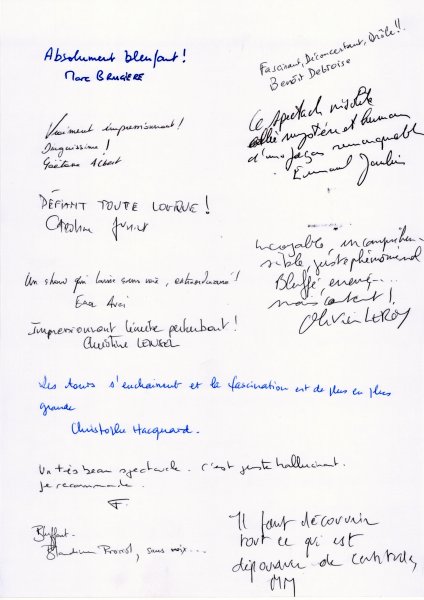 Absolument bluffant !
Marc BRUGIERE
Vraiment impressionnant !
Gaëtane
DÉFIANT TOUTE LOGIQUE !
Caroline
Un show qui laisse sans voix, extraordinaire !
Impressionnant limite perturbant !
Christine LENGEL
Les tours s'enchainent et la fascination est de plus en plus
grande
Christophe Hacquard.
Un très beau spectacle. C'est juste hallucinant.
Je recommande.
F.
Bluffant.
Blandine sans voix...
Fascinant, Déconcertant, Drôle !!
Benoît Debroise
Ce spectacle insolite
allie mystère et humour
d'une façon remarquable
Incroyable, incompréhen-
sible, juste phénoménal
Bluffé énervé...
mais content !
Olivier LEROY
Il faut découvrir
tout ce qui est
dépourvu de certitudes
MM